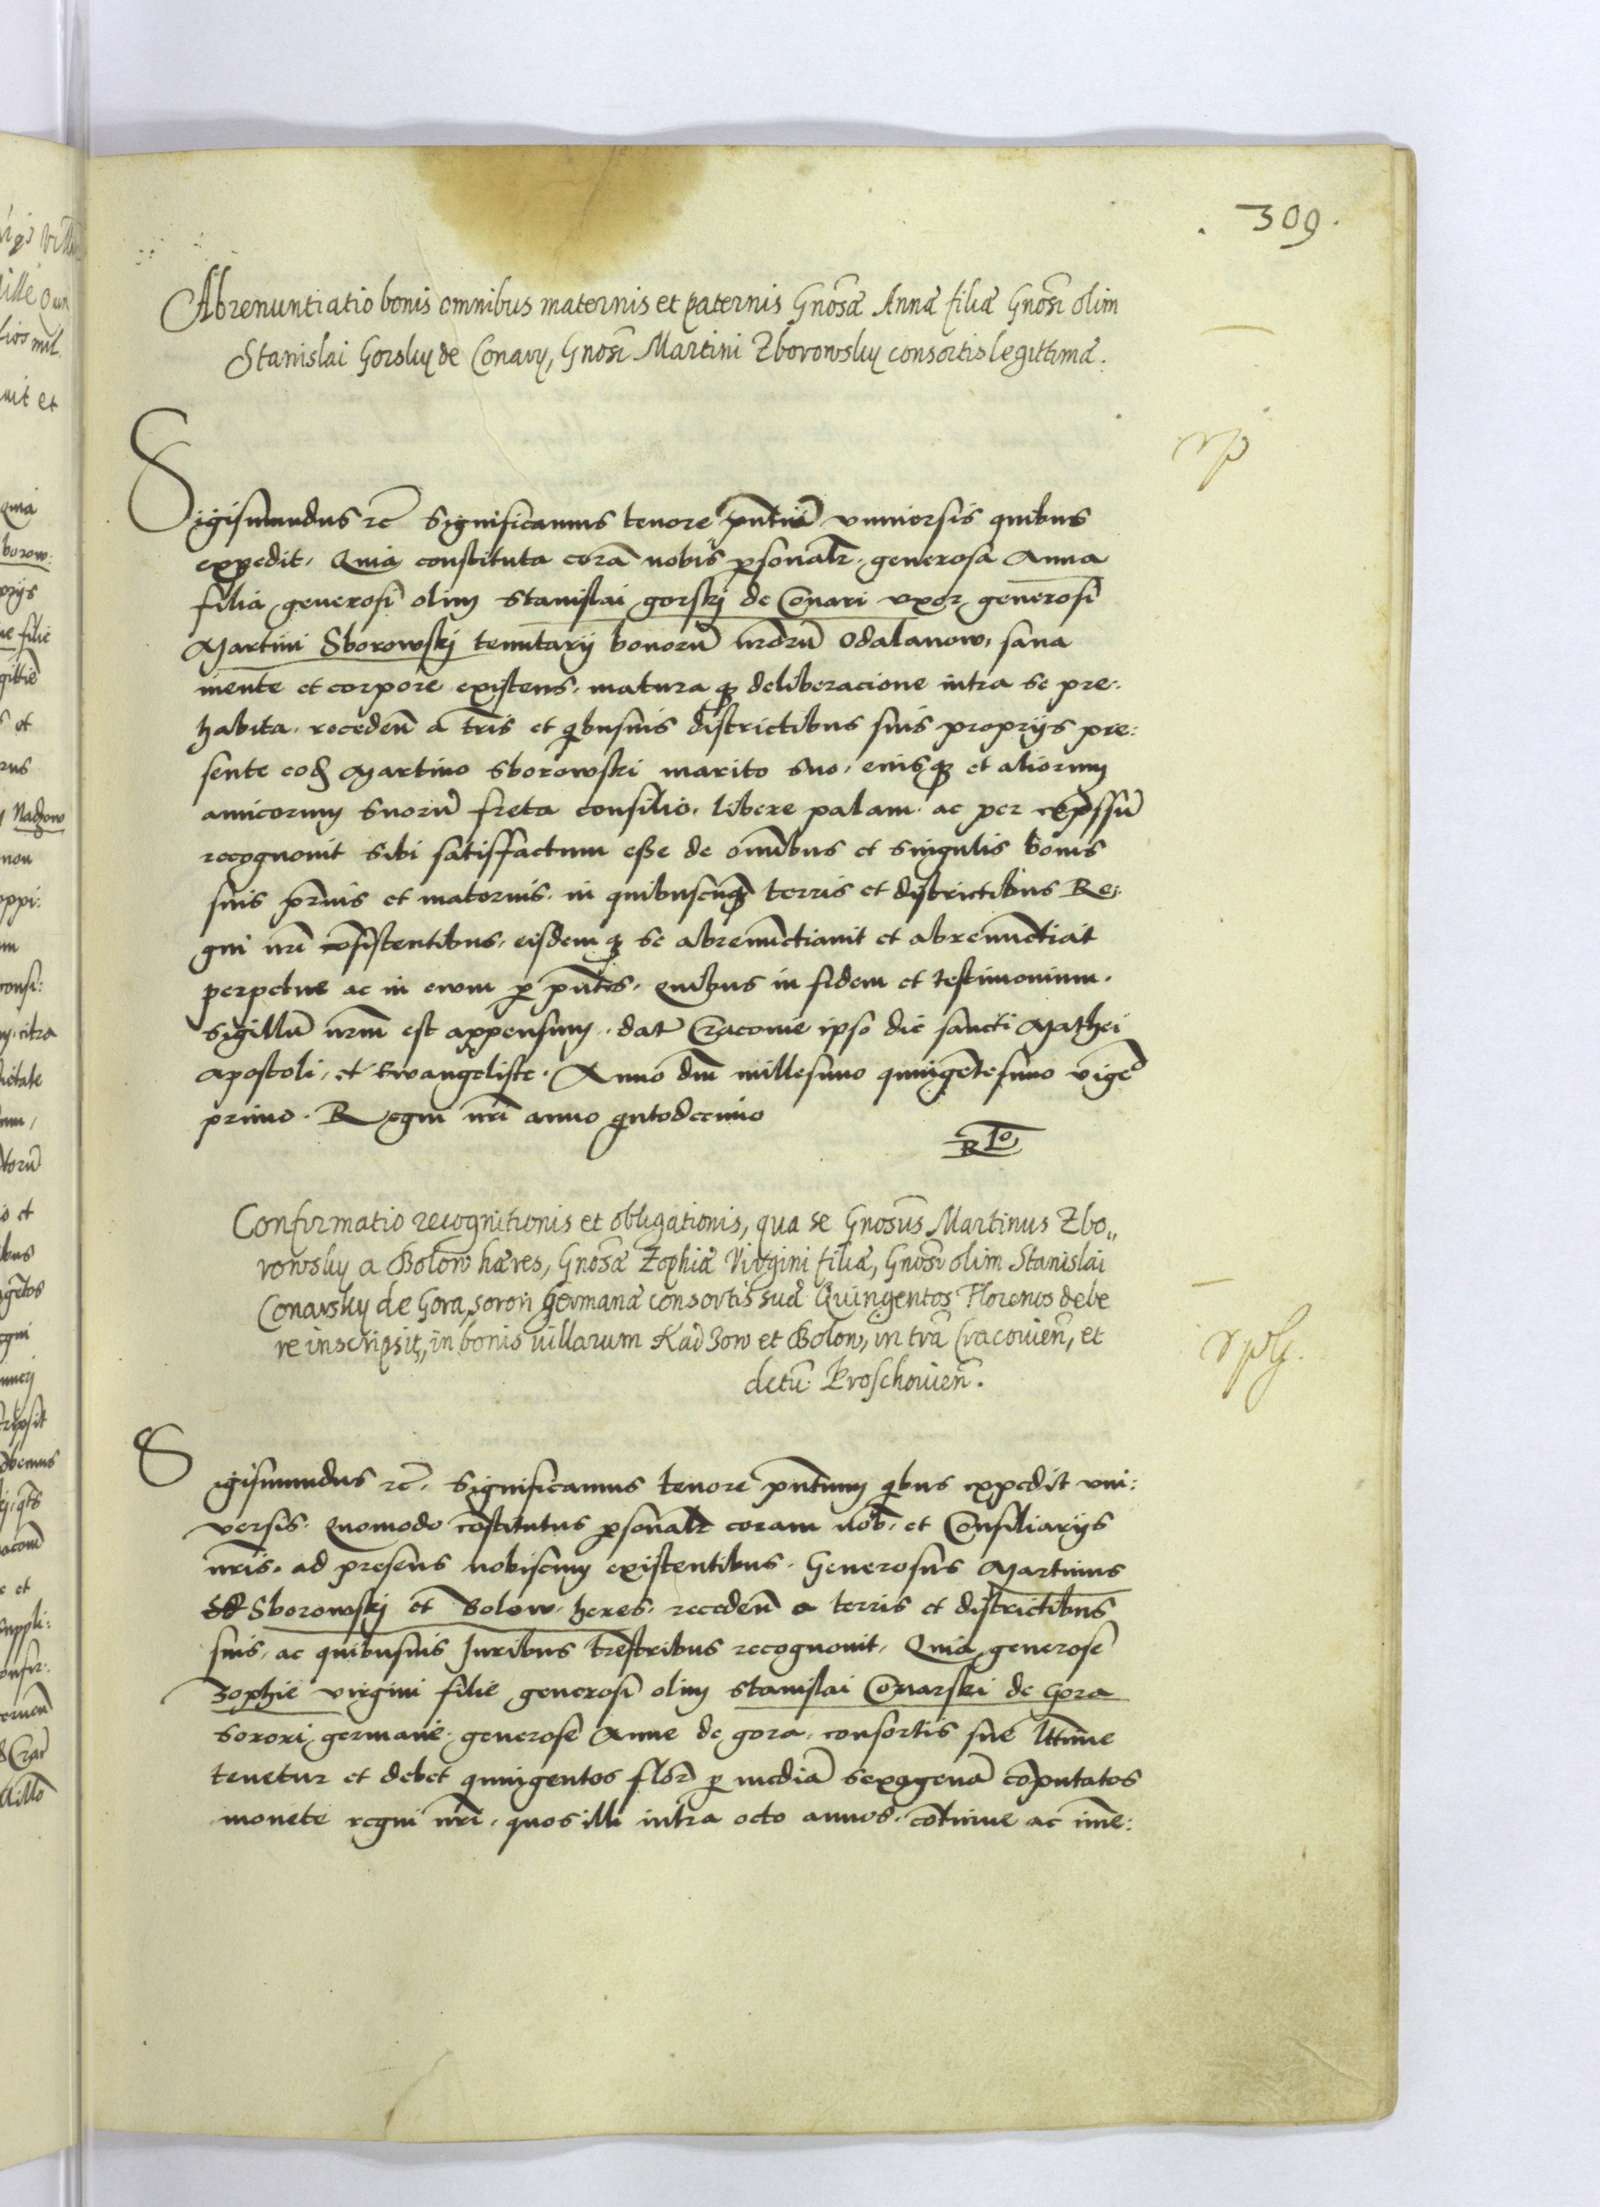 309.
Abrenuntiatio bonis omnibus maternis et paternis Gnosæ Annæ filiæ Gnosi olim
Stanislai Gorsky de Conary, Gnosi Martini Zborowsky consortis legittimæ.
Sigismundus rc Significamus tenore pntiū vniuersis quibus
expedit. Quia constituta corā nobis psonalr. generosa Anna
filia generosi olim Stanislai gorskj de Conari vxor generosi
Martini Sborowskj tenutarij bonorū nrorū Odalanow, sana
mente et corpore existens, matura qz deliberacione intra se pre:
habita. recedeñ a tris et qbusuis districtibus suis proprijs pre:
sente eod Martino Sborowski marito suo, eiusqz et aliorum
amicorum suorū freta consilio. libere palam. ac per expssū
recognouit sibi satisffactum esse de omibus et singulis bonis
suis prnis et maternis. in quibuscūqz terris et districtibus Re:
gni nri cosistentibus, eisdem qz se abrenūctiauit et abrenūctiat
perpetue ac in euum p pntes. quibus in fidem et testimonium.
Sigillū nrm est appensum. dat Cracouie ipso die sancti Mathei
apostoli, et Ewangeliste. Anno dni millesimo quingētesimo vige
primo. Regni nri anno qntodecimo
Confirmatio recognitionis et obligationis, qua se Gnosus Martinus Zbo„
rowsky a Bolow hæres, Gnosæ Zophiæ Virgini filiæ, Gnosi olim Stanislai
Conarsky de Gora, sorori germanæ consortis suæ Quingentos Florenos debe
re inscripsit, in bonis uillarum Kadzow et Bolow, in trā Cracouien, et
dctū Proschouien.
Sigismundus rc, Significamus tenore pntium qbus expedit vni:
versis. Quomodo costitutus psonalr coram nob, et Consiliarijs
nris. ad presens nobiscum existentibus. Generosus Martinus
Sborowskj et Bolow heres. recedeñ a terris et districtibus
suis, ac quibusuis Juribus trestribus recognouit. Quia generose
Zophie virgini filie generosi olim Stanislai Conarski de Gora
sorori germane generose Anne de gora. consortis sue lttime
tenetur et debet quingentos flor p mediā sexagenā coputatos
monete regni nri. quos illi intra octo annos. cotinue ac ime: